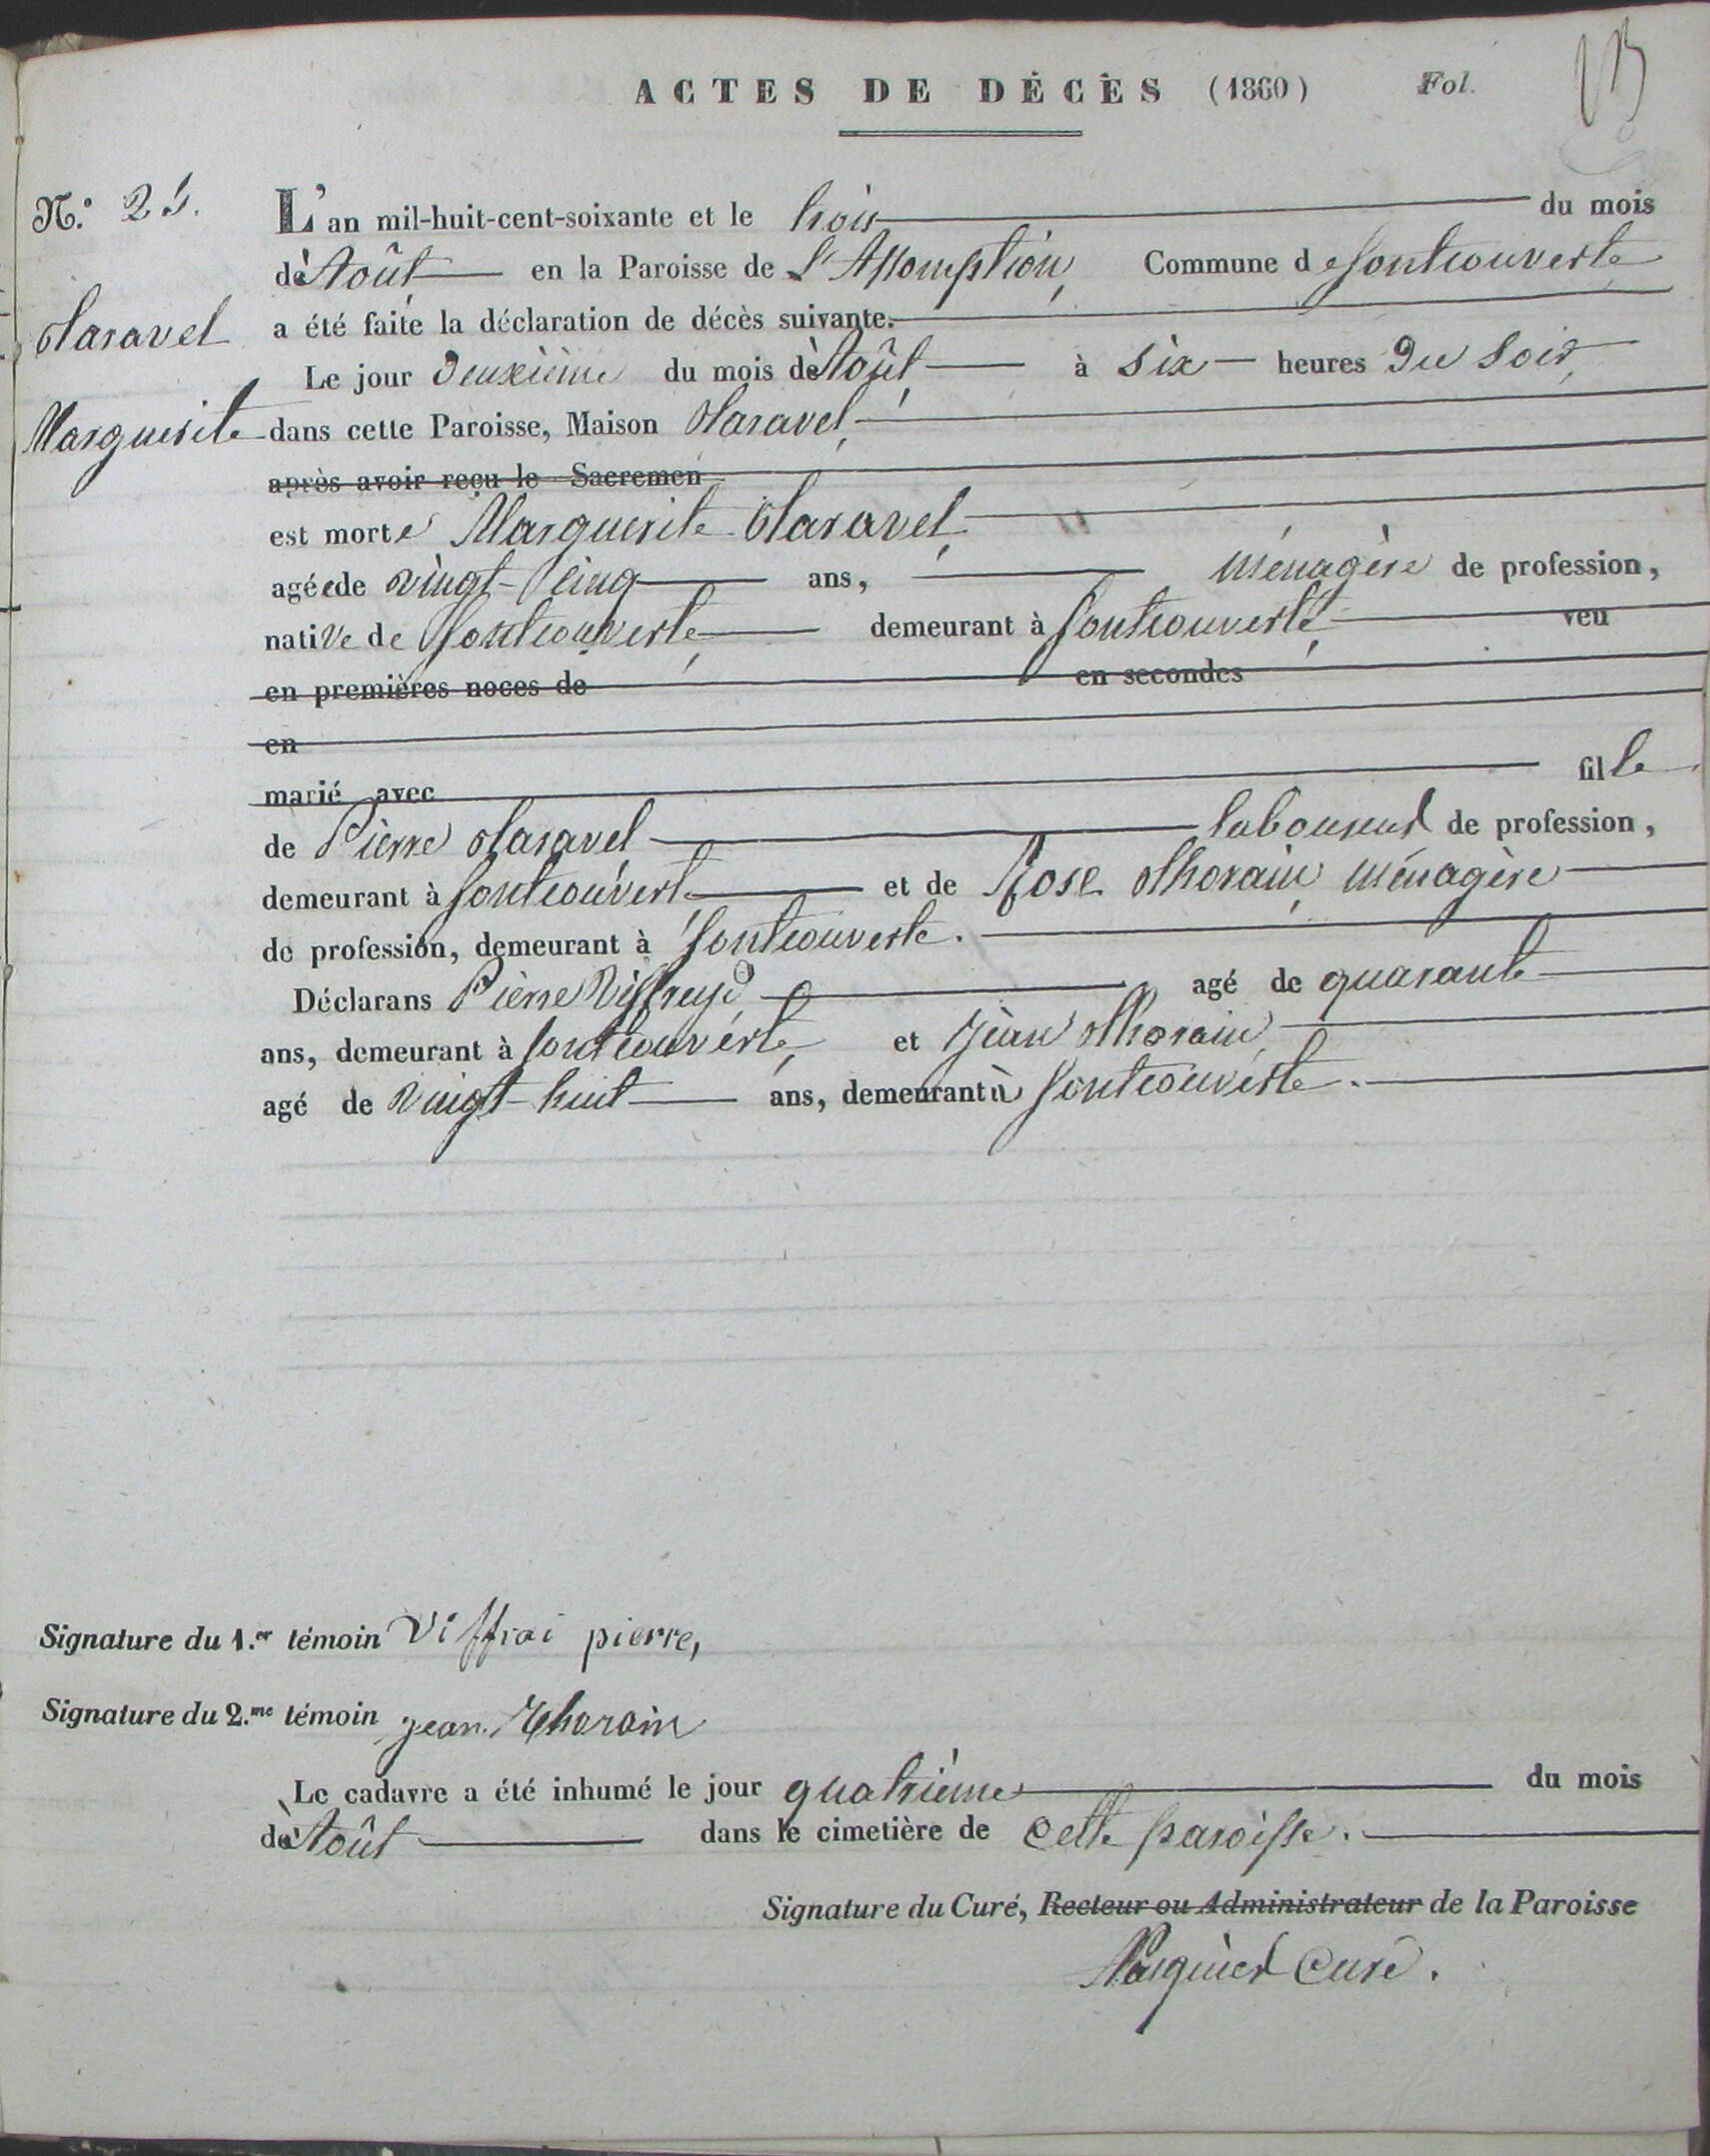 ACTES DE DÉCÈS (1860) Fol. 13
N.º 25. L'an mil-huit-cent-soixante et le trois du mois
d'Août en la Paroisse de L'Assomption, Commune de Fontcouverte
Taravel a été faite la déclaration de décès suivante.
Le jour deuxième du mois d'Août, à six heures du soir,
Marguerite dans cette Paroisse, Maison Taravel,
après avoir reçu le Sacremen
est morte Marguerite Taravel,
agée de vingt-cinq ans, ménagère de profession,
native de Fontcouverte, demeurant à Fontcouverte, veu
en premières noces de en secondes
en
marié avec fille
de Pierre Taravel laboureur de profession,
demeurant à Fontcouverte, et de Rose Thorain, ménagère
de profession, demeurant à Fontcouverte.
Déclarans Pierre Viffrey agé de quarante
ans, demeurant à Fontcouverte, et Jean Thorain,
agé de vingt-huit ans, demeurant à Fontcouverte.
Signature du 1.er témoin Viffrai pierre,
Signature du 2.me témoin jean Thorain
Le cadavre a été inhumé le jour quatrième du mois
d'Août dans le cimetière de cette paroisse.
Signature du Curé, Recteur ou Administrateur de la Paroisse
Curé.